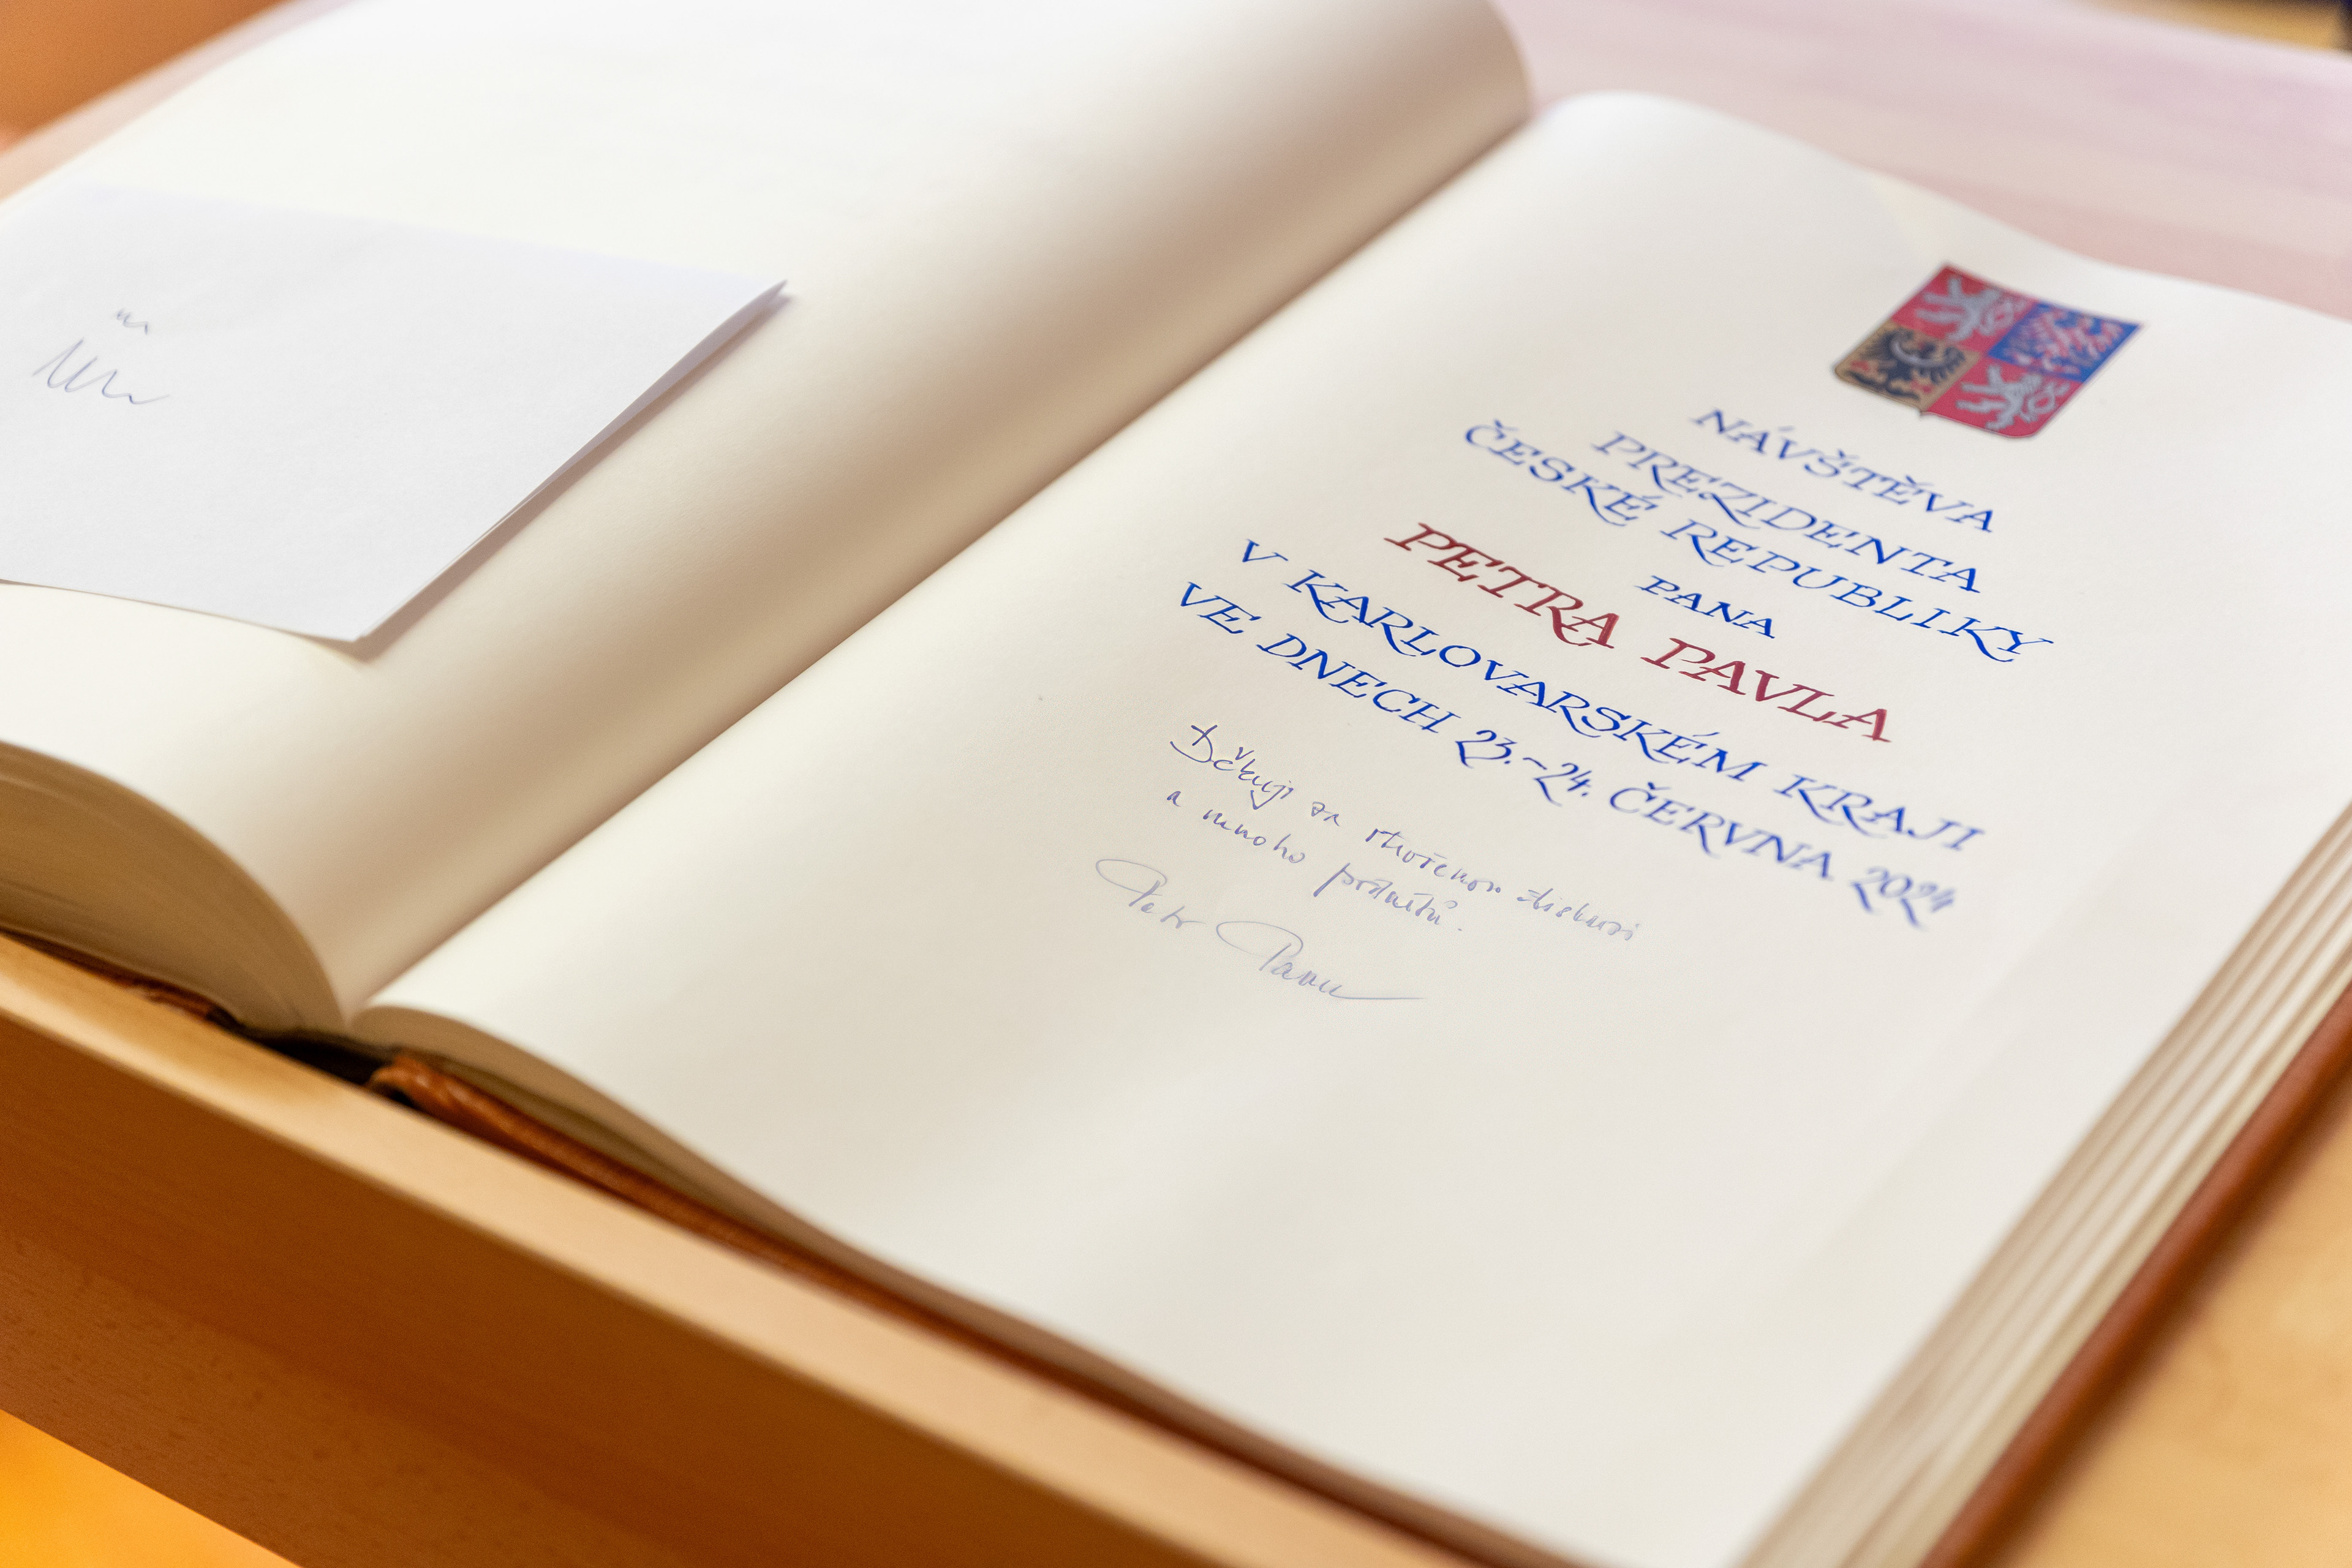 NÁVŠTĚVA
PREZIDENTA
ČESKÉ REPUBLIKY
PANA
PETRA PAVLA
V KARLOVARSKÉM KRAJI
VE DNECH 23.-24. ČERVNA 2024
Děkuji za otevřenou diskusi
a mnoho podnětů.
Petr Pavel